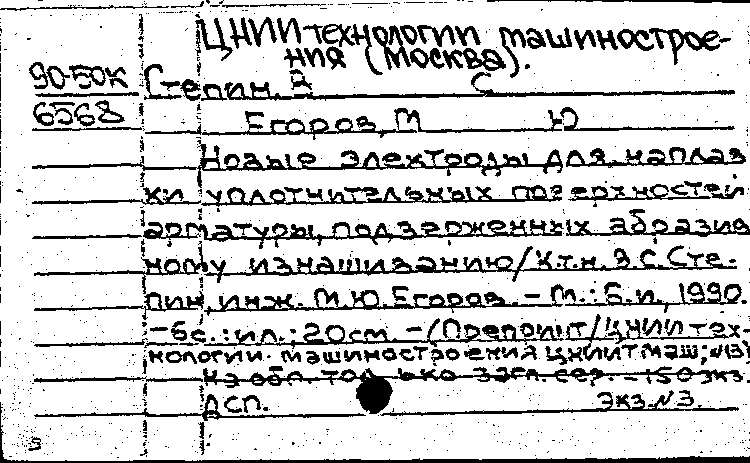 ЦНИИ технологии машинострое-
ния (Москва).
90-50к Степин, В С
6568 Егоров, М Ю
Новые электроды для наплав
ки уплотнительных поверхностей
арматуры, подверженных абразив
ному изнашиванию/К.т.н. В.С.Сте-
пин, инж. М.Ю.Егоров. - М.: Б.и, 1990.
-6с.: ил.; 20см. -(Препринт/ЦНИИ тех-
нологии машиностроения ЦНИИТмаш; №13)
На обл. только загл. сер. -150 экз.
ДСП. Экз.№3.